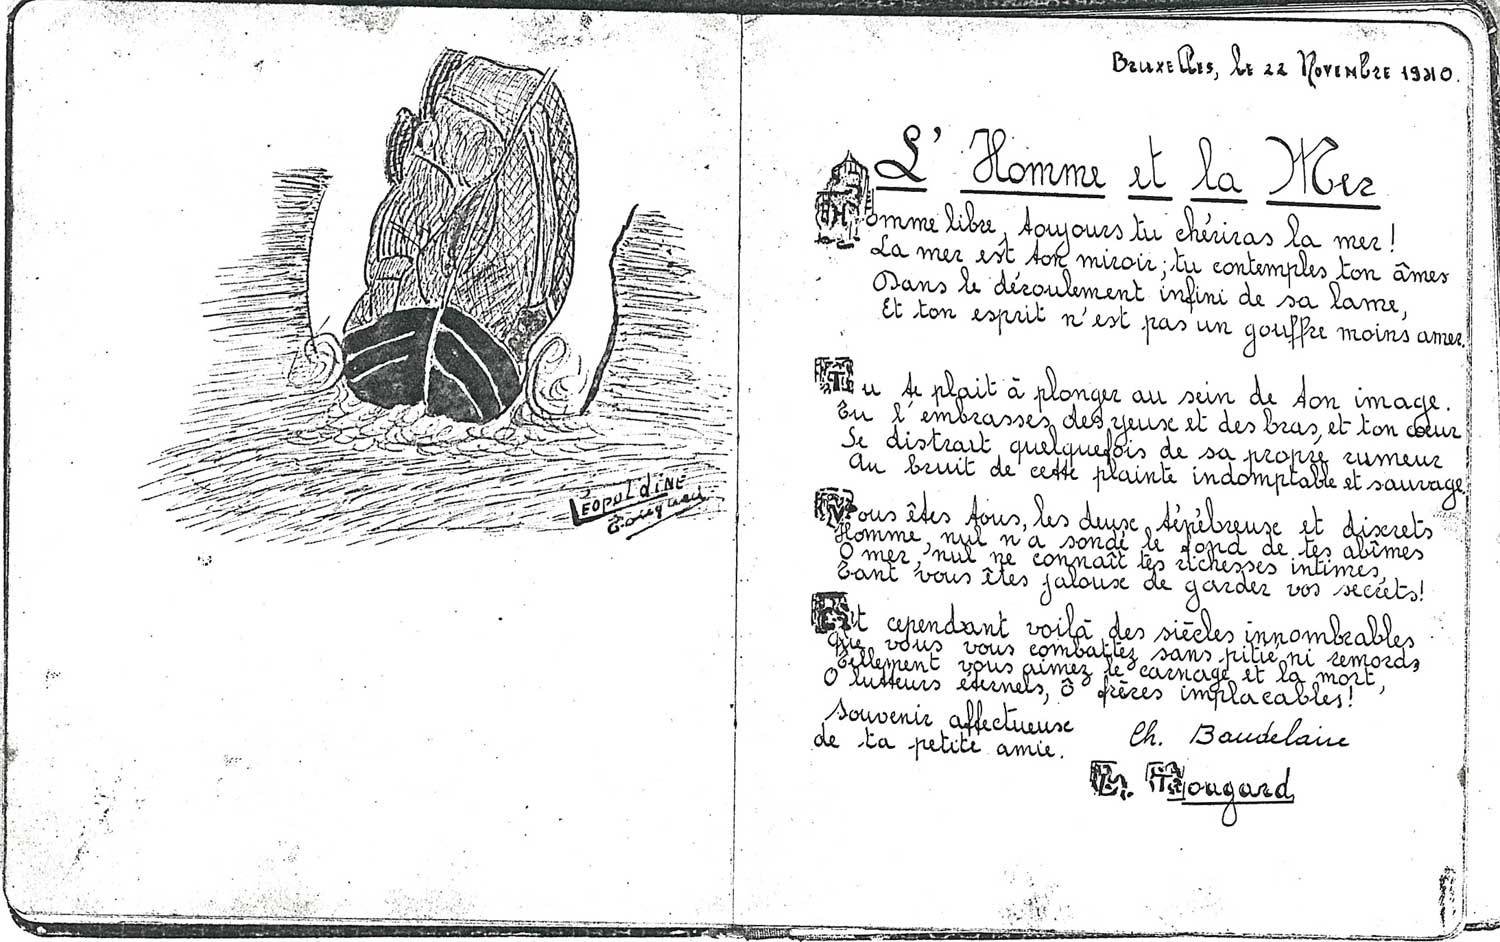 Léopoldine
Bruxelles, le 22 Novembre 1940.
L' Homme et la Mer
Homme libre, toujours tu chériras la mer!
La mer est ton miroir; tu contemples ton âmes
Dans le déroulement infini de sa lame,
Et ton esprit n'est pas un gouffre moins amer.
Tu te plait à plonger au sein de ton image.
Tu l'embrasses des yeux et des bras, et ton cœur
Se distrait quelquefois de sa propre rumeur
Au bruit de cette plainte indomptable et sauvage
Vous êtes tous, les deux, ténébreux et discrets
Homme, nul n'a sondé le fond de tes abîmes
O mer, nul ne connaît tes richesses intimes,
Tant vous êtes jaloux de garder vos secrets!
Et cependant voilà des siècles innombrables
Que vous vous combattez sans pitié ni remords,
Tellement vous aimez le carnage et la mort,
O lutteurs éternels, ô frères implacables!
Souvenir affectueux
de ta petite amie.
Ch. Baudelaire
L. Tougard